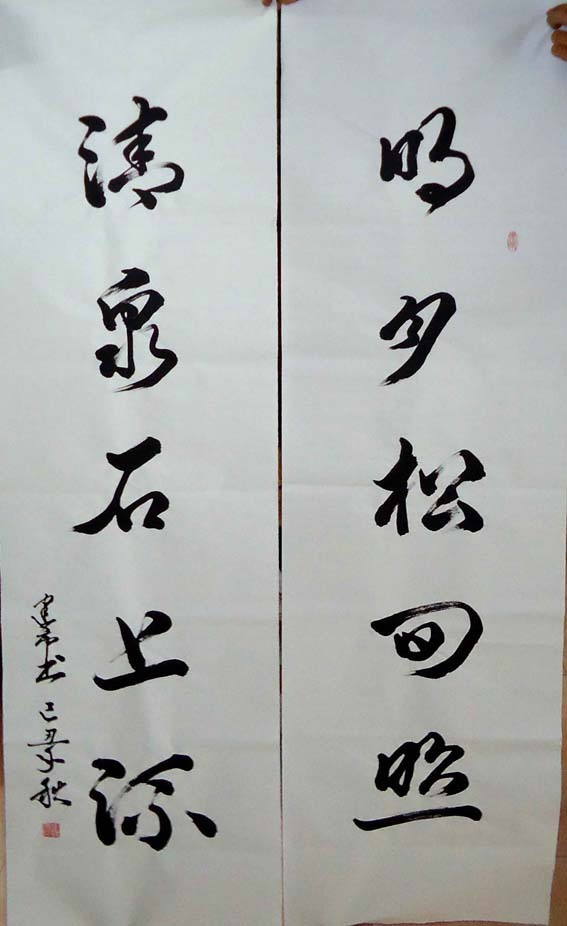 明月松间照
清泉石上流
建书 己丑年秋